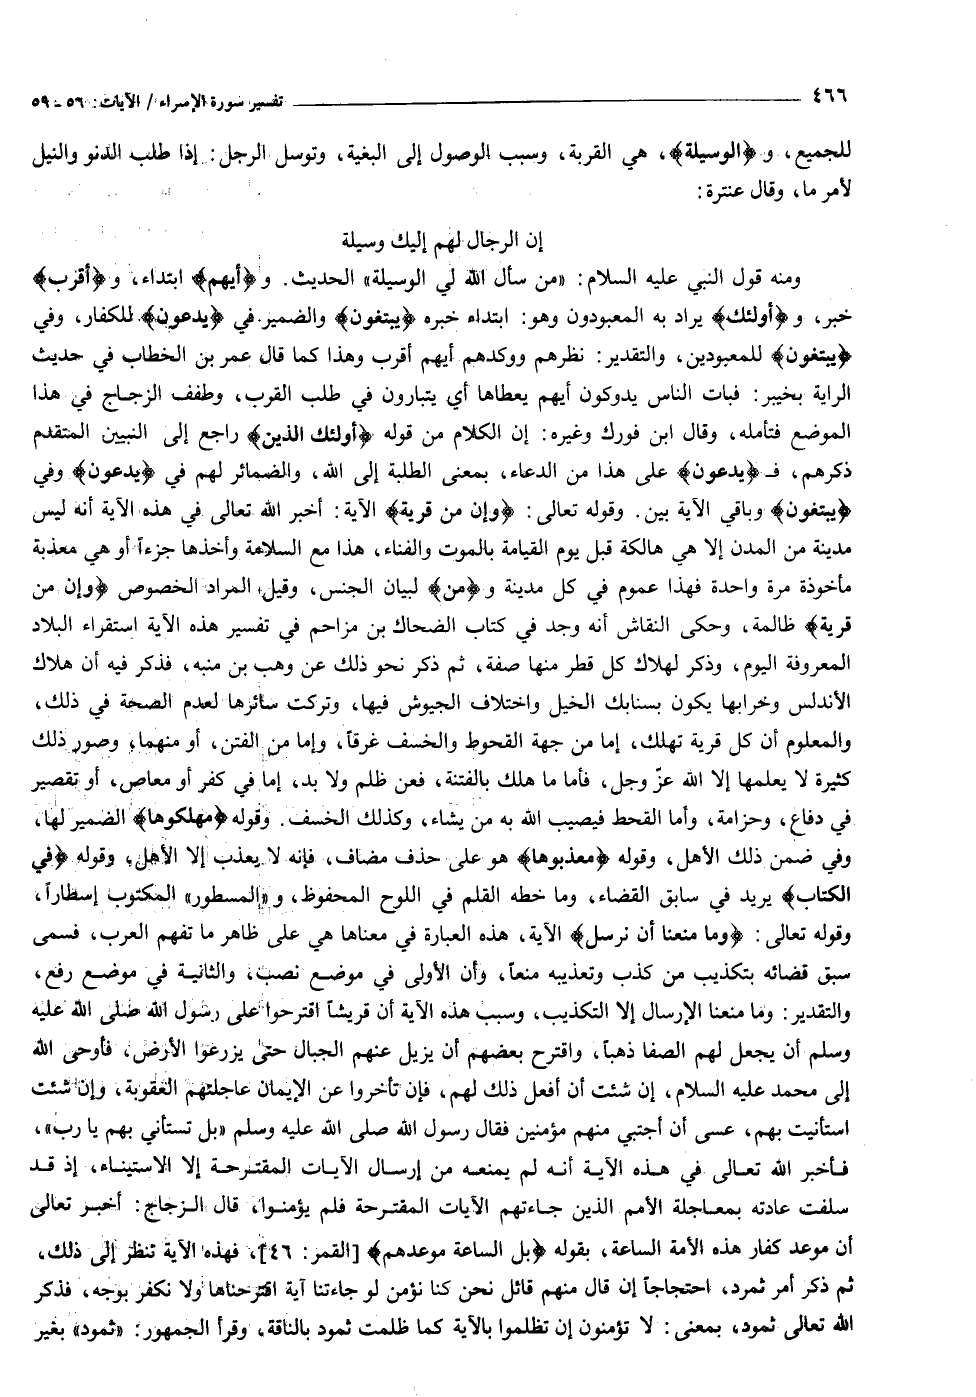 ٤٦٦ تفسير سورة الإسراء / الآيات: ٥٦ - ٥٩
للجميع، و ﴿الوسيلة﴾، هي القربة، وسبب الوصول إلى البغية، وتوسل الرجل: إذا طلب الدنو والنيل
لأمر ما، وقال عنترة:
إن الرجال لهم إليك وسيلة
ومنه قول النبي عليه السلام: «من سأل الله لي الوسيلة» الحديث. و﴿أيهم﴾ ابتداء، و﴿أقرب﴾
خبر، و﴿أولئك﴾ يراد به المعبودون وهو: ابتداء خبره ﴿يبتغون﴾ والضمير في ﴿يدعون﴾ للكفار، وفي
﴿يبتغون﴾ للمعبودين، والتقدير: نظرهم ووكدهم أيهم أقرب وهذا كما قال عمر بن الخطاب في حديث
الراية بخيبر: فبات الناس يدوكون أيهم يعطاها أي يتبارون في طلب القرب، وطفف الزجاج في هذا
الموضع فتأمله، وقال ابن فورك وغيره: إن الكلام من قوله ﴿أولئك الذين﴾ راجع إلى النبيين المتقدم
ذكرهم، فـ ﴿يدعون﴾ على هذا من الدعاء، بمعنى الطلبة إلى الله، والضمائر لهم في ﴿يدعون﴾ وفي
﴿يبتغون﴾ وباقي الآية بين. وقوله تعالى: ﴿وإن من قرية﴾ الآية: أخبر الله تعالى في هذه الآية أنه ليس
مدينة من المدن إلا هي هالكة قبل يوم القيامة بالموت والفناء، هذا مع السلامة وأخذها جزءاً أو هي معذبة
مأخوذة مرة واحدة فهذا عموم في كل مدينة و﴿من﴾ لبيان الجنس، وقيل المراد الخصوص ﴿وإن من
قرية﴾ ظالمة، وحكى النقاش أنه وجد في كتاب الضحاك بن مزاحم في تفسير هذه الآية استقراء البلاد
المعروفة اليوم، وذكر لهلاك كل قطر منها صفة، ثم ذكر نحو ذلك عن وهب بن منبه، فذكر فيه أن هلاك
الأندلس وخرابها يكون بسنابك الخيل واختلاف الجيوش فيها، وتركت سائرها لعدم الصحة في ذلك،
والمعلوم أن كل قرية تهلك، إما من جهة القحوط والخسف غرقاً، وإما من الفتن، أو منهما، وصور ذلك
كثيرة لا يعلمها إلا الله عزّ وجل، فأما ما هلك بالفتنة، فعن ظلم ولا بد، إما في كفر أو معاص، أو تقصير
في دفاع، وحزامة، وأما القحط فيصيب الله به من يشاء، وكذلك الخسف. وقوله ﴿مهلكوها﴾ الضمير لها،
وفي ضمن ذلك الأهل، وقوله ﴿معذبوها﴾ هو على حذف مضاف، فإنه لا يعذب إلا الأهل، وقوله ﴿في
الكتاب﴾ يريد في سابق القضاء، وما خطه القلم في اللوح المحفوظ، و«المسطور» المكتوب إسطاراً،
وقوله تعالى: ﴿وما منعنا أن نرسل﴾ الآية، هذه العبارة في معناها هي على ظاهر ما تفهم العرب، فسمى
سبق قضائه بتكذيب من كذب وتعذيبه منعاً، وأن الأولى في موضع نصب، والثانية في موضع رفع،
والتقدير: وما منعنا الإرسال إلا التكذيب، وسبب هذه الآية أن قريشاً اقترحوا على رسول الله صلى الله عليه
وسلم أن يجعل لهم الصفا ذهباً، واقترح بعضهم أن يزيل عنهم الجبال حتى يزرعوا الأرض، فأوحى الله
إلى محمد عليه السلام، إن شئت أن أفعل ذلك لهم، فإن تأخروا عن الإيمان عاجلتهم العقوبة، وإن شئت
استأنيت بهم، عسى أن أجتبي منهم مؤمنين فقال رسول الله صلى الله عليه وسلم «بل تستأني بهم يا رب»،
فأخبر الله تعالى في هذه الآية أنه لم يمنعه من إرسال الآيات المقترحة إلا الاستيناء، إذ قد
سلفت عادته بمعاجلة الأمم الذين جاءتهم الآيات المقترحة فلم يؤمنوا، قال الزجاج: أخبر تعالى
أن موعد كفار هذه الأمة الساعة، بقوله ﴿بل الساعة موعدهم﴾ [القمر: ٤٦]، فهذه الآية تنظر إلى ذلك،
ثم ذكر أمر ثمرد، احتجاجاً إن قال منهم قائل نحن كنا نؤمن لو جاءتنا آية اقترحناها ولا نكفر بوجه، فذكر
الله تعالى ثمود، بمعنى: لا تؤمنون إن تظلموا بالآية كما ظلمت ثمود بالناقة، وقرأ الجمهور: «ثمود» بغير